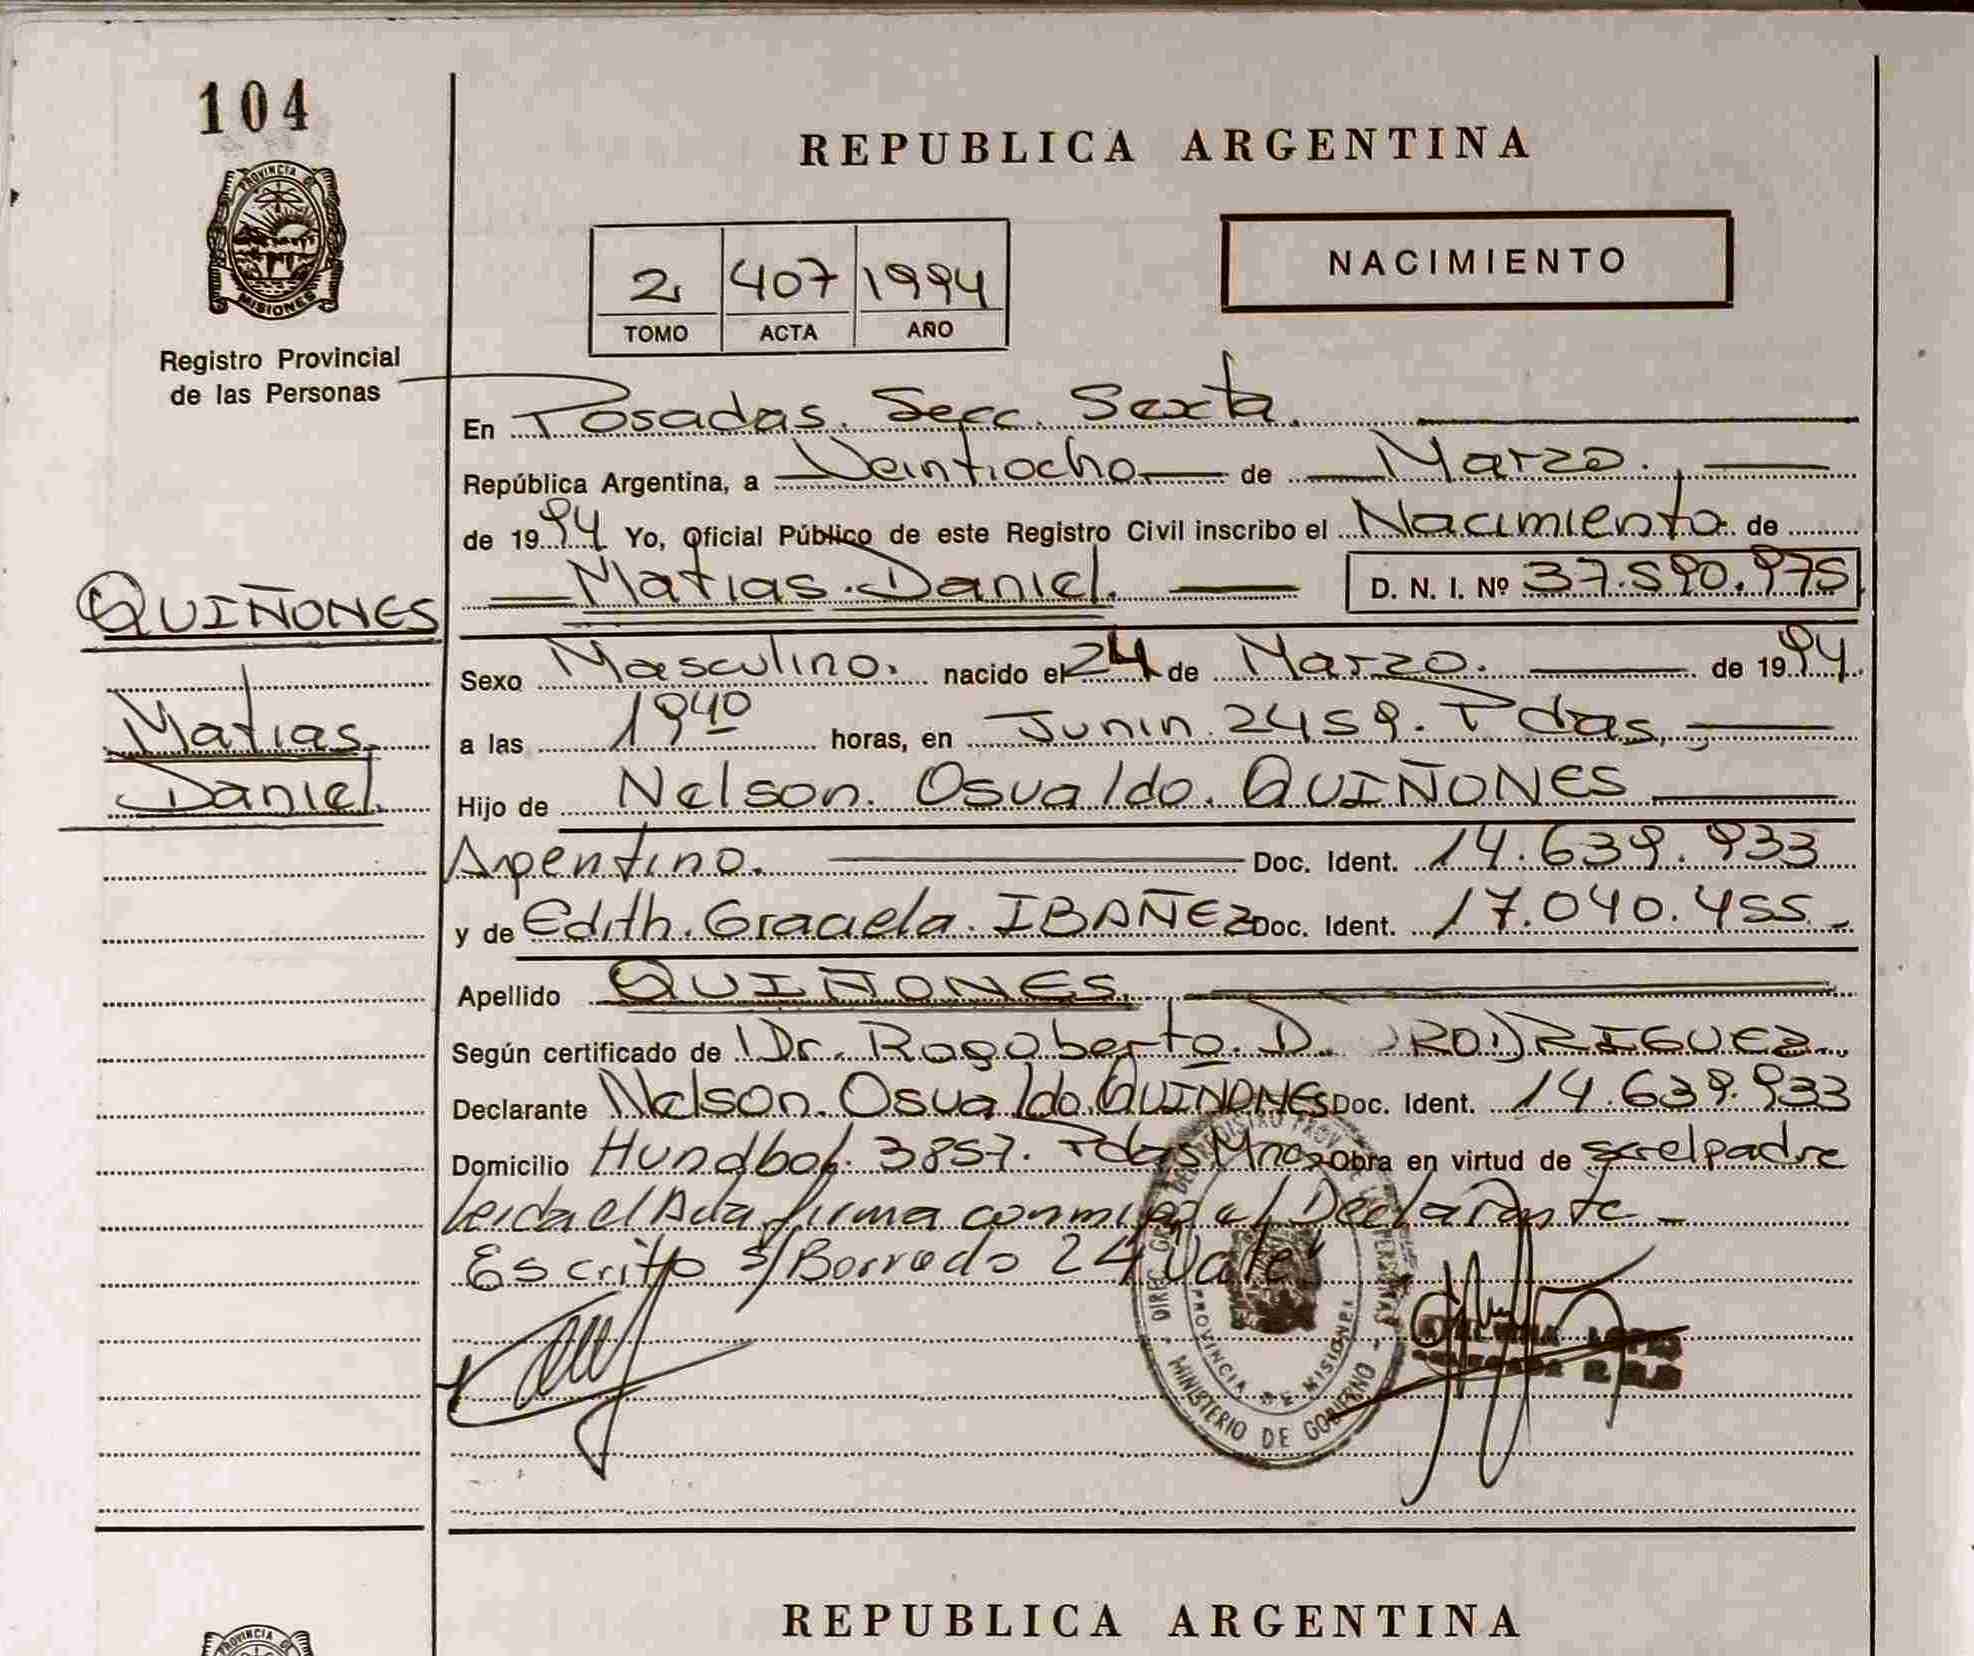 104
PROVINCIA DE
MISIONES
Registro Provincial
de las Personas
REPUBLICA ARGENTINA
2 407 1994
TOMO ACTA AÑO
NACIMIENTO
En Posadas. Secc. Sexta.
República Argentina, a Veintiocho de Marzo.
de 1994 Yo, Oficial Público de este Registro Civil inscribo el Nacimiento de
Matias. Daniel. D. N. I. Nº 37.590.975
QUIÑONES
Matias.
Daniel.
Sexo Masculino. nacido el 24 de Marzo. de 1994.
a las 1940 horas, en Junin. 2459. Pdas.
Hijo de Nelson. Osvaldo. QUIÑONES
Argentino. Doc. Ident. 14.639.933
y de Edith. Graciela. IBAÑEZ Doc. Ident. 17.040.455
Apellido QUIÑONES.
Según certificado de Dr. Rogoberto. D. RODRIGUEZ.
Declarante Nelson. Osvaldo. QUIÑONES Doc. Ident. 14.639.933
Domicilio 3857. Pdas. Mnes Obra en virtud de ser el padre
leida el Acta firma conmigo el Declarante
Escrito s/Borrado 24 Vale
MINISTERIO DE GOBIERNO
PROVINCIA DE MISIONES
LOPEZ
REPUBLICA ARGENTINA
PROVINCIA DE